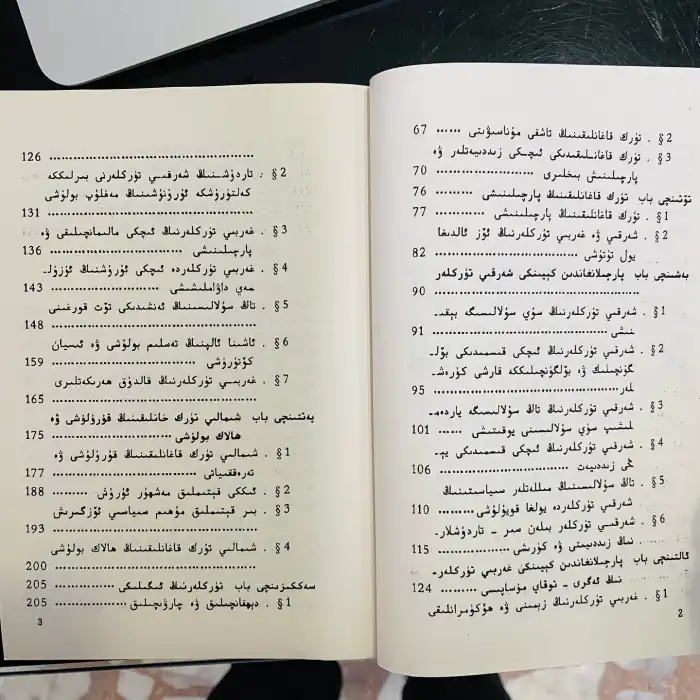 § 2 . تۈرك قاغانلىقىنىڭ تاشقى مۇناسىۋىتى ...... 67
§ 3 . تۈرك قاغانلىقىدىكى ئىچكى زىددىيەتلەر ۋە
پارچىلىنىش بىخلىرى ...................... 70
تۆتىنچى باب تۈرك قاغانلىقىنىڭ پارچىلىنىشى ......... 76
§ 1 . تۈرك قاغانلىقىنىڭ پارچىلىنىشى ............ 77
§ 2 . شەرقىي ۋە غەربىي تۈركلەرنىڭ ئۆز ئالدىغا
يول تۇتۇشى ........................... 82
بەشىنچى باب پارچىلانغاندىن كېيىنكى شەرقىي تۈركلەر
........................................ 90
§ 1 . شەرقىي تۈركلەرنىڭ سۈي سۇلالىسىگە بېقىـ
نىشى ................................ 91
§ 2 . شەرقىي تۈركلەرنىڭ ئىچكى قىسمىدىكى بۆلـ
گۈنچىلىك ۋە بۆلگۈنچىلىككە قارشى كۈرەشـ
لەر ................................. 95
§ 3 . شەرقىي تۈركلەرنىڭ تاڭ سۇلالىسىگە ياردەمـ
لىشىپ سۈي سۇلالىسىنى يوقىتىشى ...... 101
§ 4 . شەرقىي تۈركلەرنىڭ ئىچكى قىسمىدىكى يېـ
ڭى زىددىيەت ........................ 106
§ 5 . تاڭ سۇلالىسىنىڭ مىللەتلەر سىياسىتىنىڭ
شەرقىي تۈركلەردە يولغا قويۇلۇشى ......... 110
§ 6 . شەرقىي تۈركلەر بىلەن سىر - تاردۇشلارـ
نىڭ زىددىيىتى ۋە كۈرىشى ................ 115
ئالتىنچى باب پارچىلانغاندىن كېيىنكى غەربىي تۈركلەرـ
نىڭ ئەگرى - توقاي مۇساپىسى ......... 124
§ 1 . غەربىي تۈركلەرنىڭ زېمىنى ۋە ھۆكۈمرانلىقى
2
.................................... 126
§ 2 . تاردۇشنىڭ شەرقىي تۈركلەرنى بىرلىككە
كەلتۈرۈشكە ئۇرۇنۇشىنىڭ مەغلۇپ بولۇشى
.................................... 131
§ 3 . غەربىي تۈركلەرنىڭ ئىچكى مالىمانچىلىقى ۋە
پارچىلىنىشى ......................... 136
§ 4 . غەربىي تۈركلەردە ئىچكى ئۇرۇشنىڭ ئۈزۈلـ
مەي داۋاملىشىشى ..................... 143
§ 5 . تاڭ سۇلالىسىنىڭ ئەنشىدىكى تۆت قورغىنى
.................................... 148
§ 6 . ئاشىنا ئالپنىڭ تەسلىم بولۇشى ۋە ئىسيان
كۆتۈرۈشى ........................... 159
§ 7 . غەربىي تۈركلەرنىڭ قالدۇق ھەرىكەتلىرى
.................................... 165
يەتتىنچى باب شىمالىي تۈرك خانلىقىنىڭ قۇرۇلۇشى ۋە
ھالاك بولۇشى ..................... 175
§ 1 . شىمالىي تۈرك قاغانلىقىنىڭ قۇرۇلۇشى ۋە
تەرەققىياتى ......................... 177
§ 2 . ئىككى قېتىملىق مەشھۇر ئۇرۇش ......... 188
§ 3 . بىر قېتىملىق مۇھىم سىياسىي ئۆزگىرىش
.................................... 193
§ 4 . شىمالىي تۈرك قاغانلىقىنىڭ ھالاك بولۇشى
.................................... 200
سەككىزىنچى باب تۈركلەرنىڭ ئىگىلىكى ............... 205
§ 1 . دېھقانچىلىق ۋە چارۋىچىلىق .............. 205
3